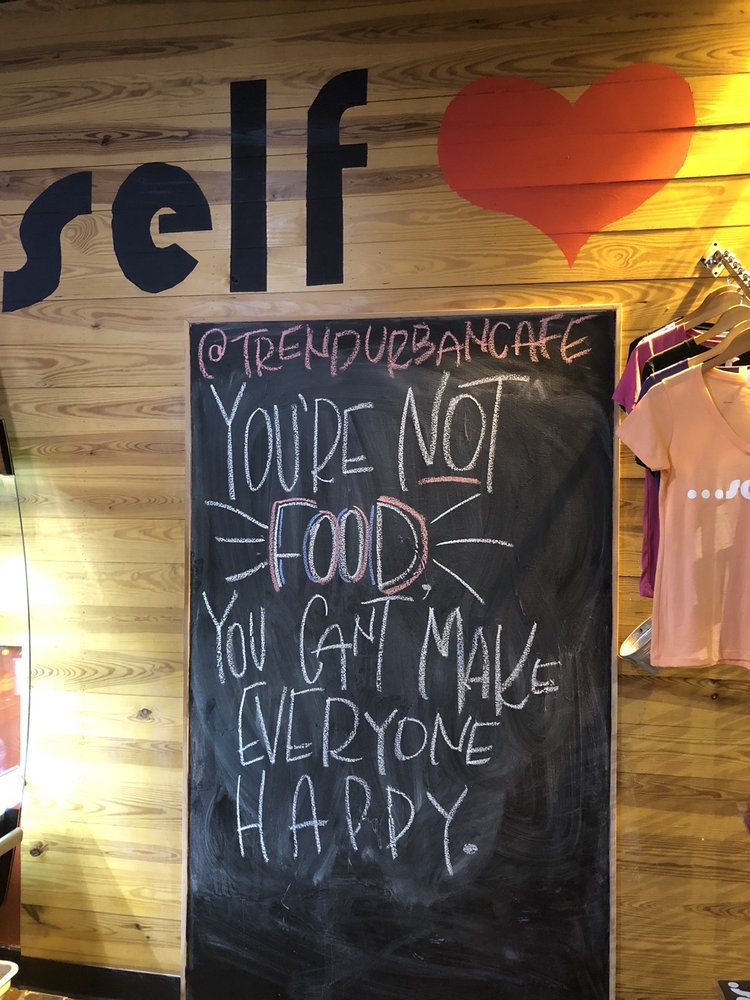 self
@TRENDURBANCAFE
YOU'RE NOT
FOOD,
YOU CANT MAKE
EVERYONE
HAPPY.